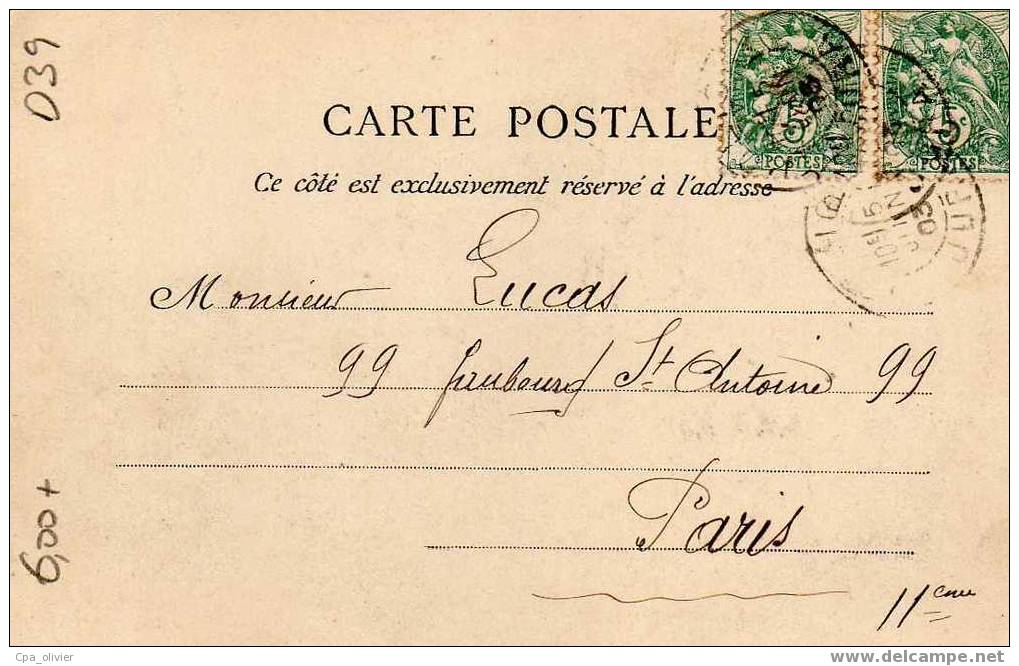 D39
CARTE POSTALE
Ce côté est exclusivement réservé à l'adresse
5 POSTES
5 POSTES
5 JUIN 03
Monsieur Lucas
99 faubourg St Antoine 99
Paris
11eme
6,00+
Cpa_olivier
www.delcampe.net